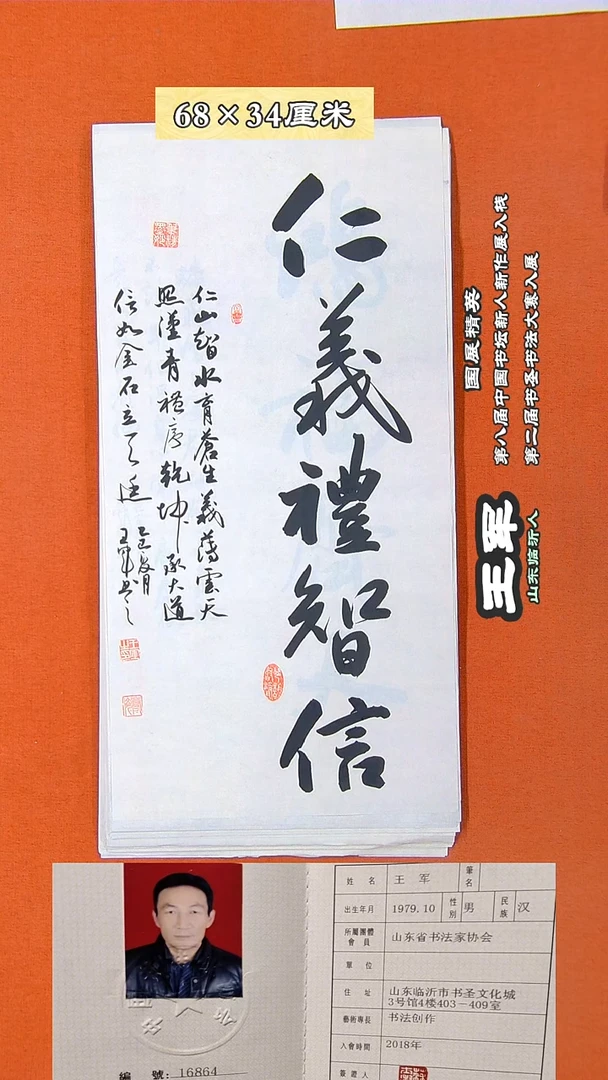 68×34厘米
仁義禮智信
仁山智水育蒼生義薄雲天
照漢青禮序乾坤承大道
信如金石立天廷
王軍書
国展精英
第八届中国书坛新人新作展入展
第二届书圣书法大赛入展
王军
山东临沂人
姓 名 王 军 筆名
出生年月 1979.10 性别 男 民族 汉
所屬團體會員 山东省书法家协会
單 位
住 址 山东临沂市书圣文化城
3号馆4楼403-409室
藝術專長 书法创作
入會時間 2018年
簽證人
編 號: 16864